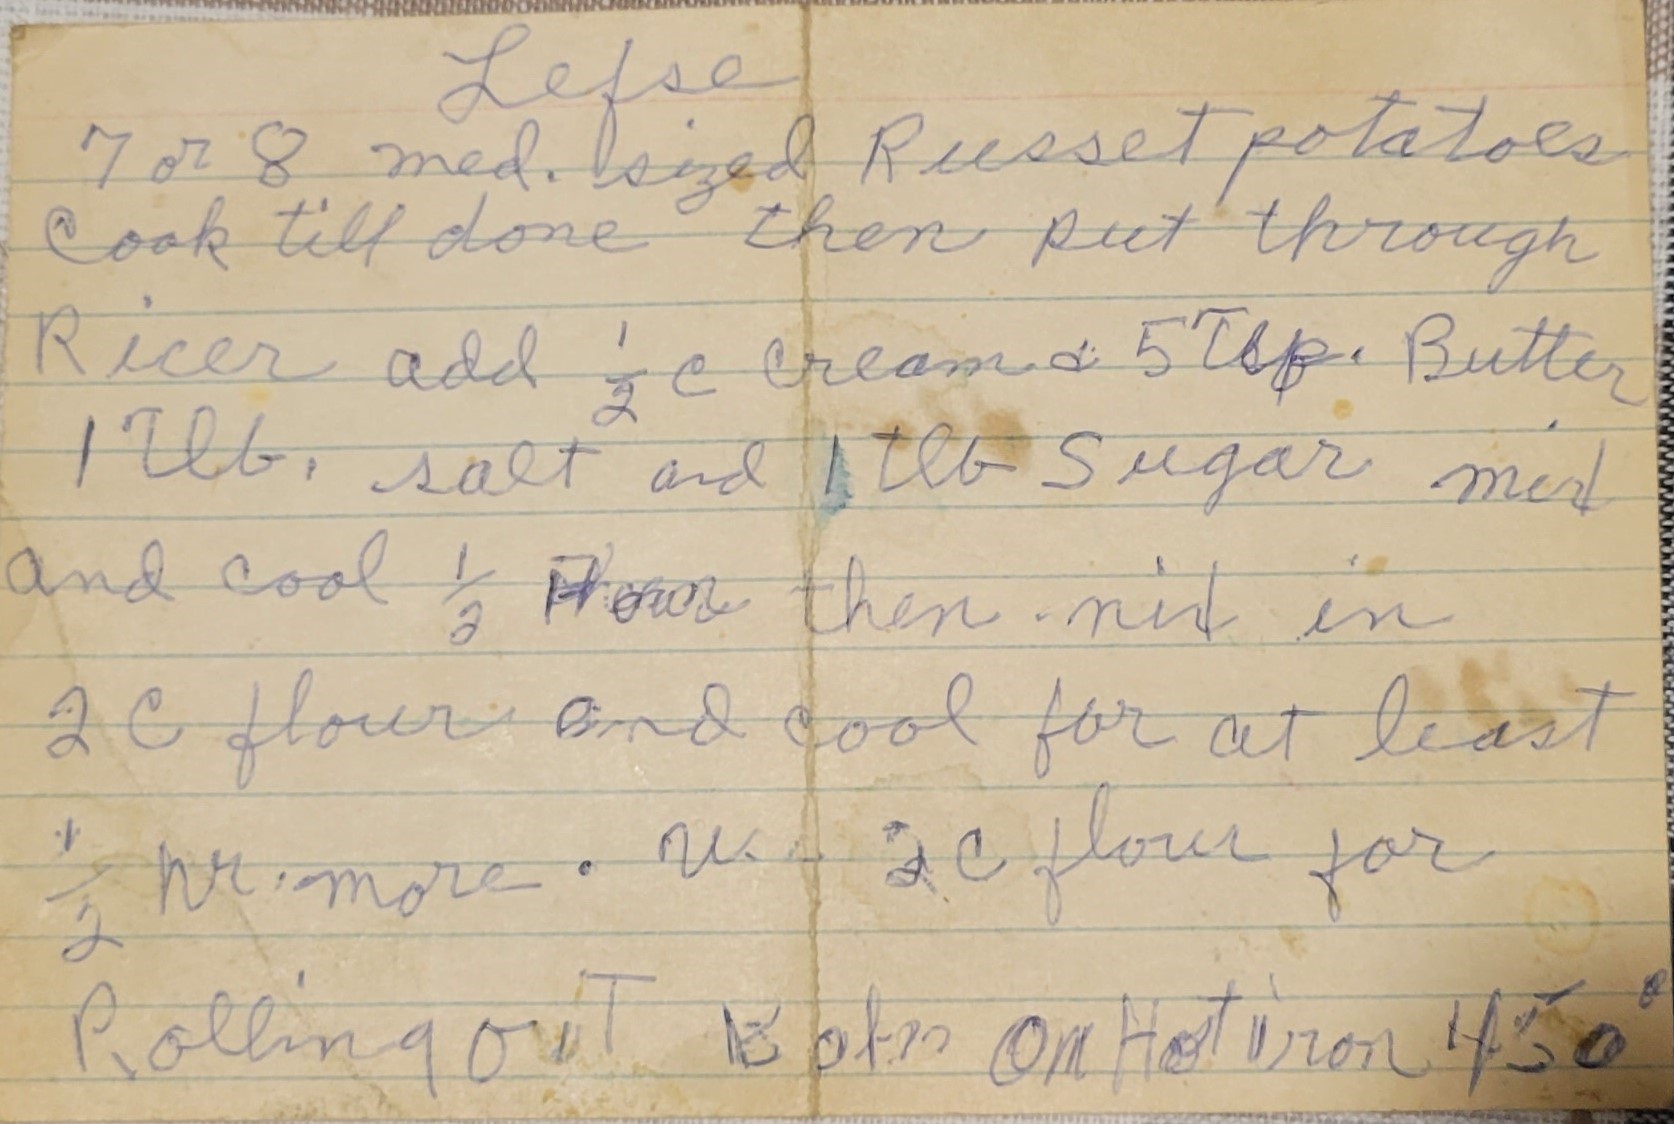 Lefse
7 or 8 med. sized Russet potatoes
Cook till done then put through
Ricer add 1/2 c cream & 5 Tbsp. Butter
1 Tlb. salt and 1 tlb Sugar mix
and cool 1/2 Hour then mix in
2 C flour and cool for at least
1/2 hr. more. 2 C flour for
Rolling out On Hot iron 450°